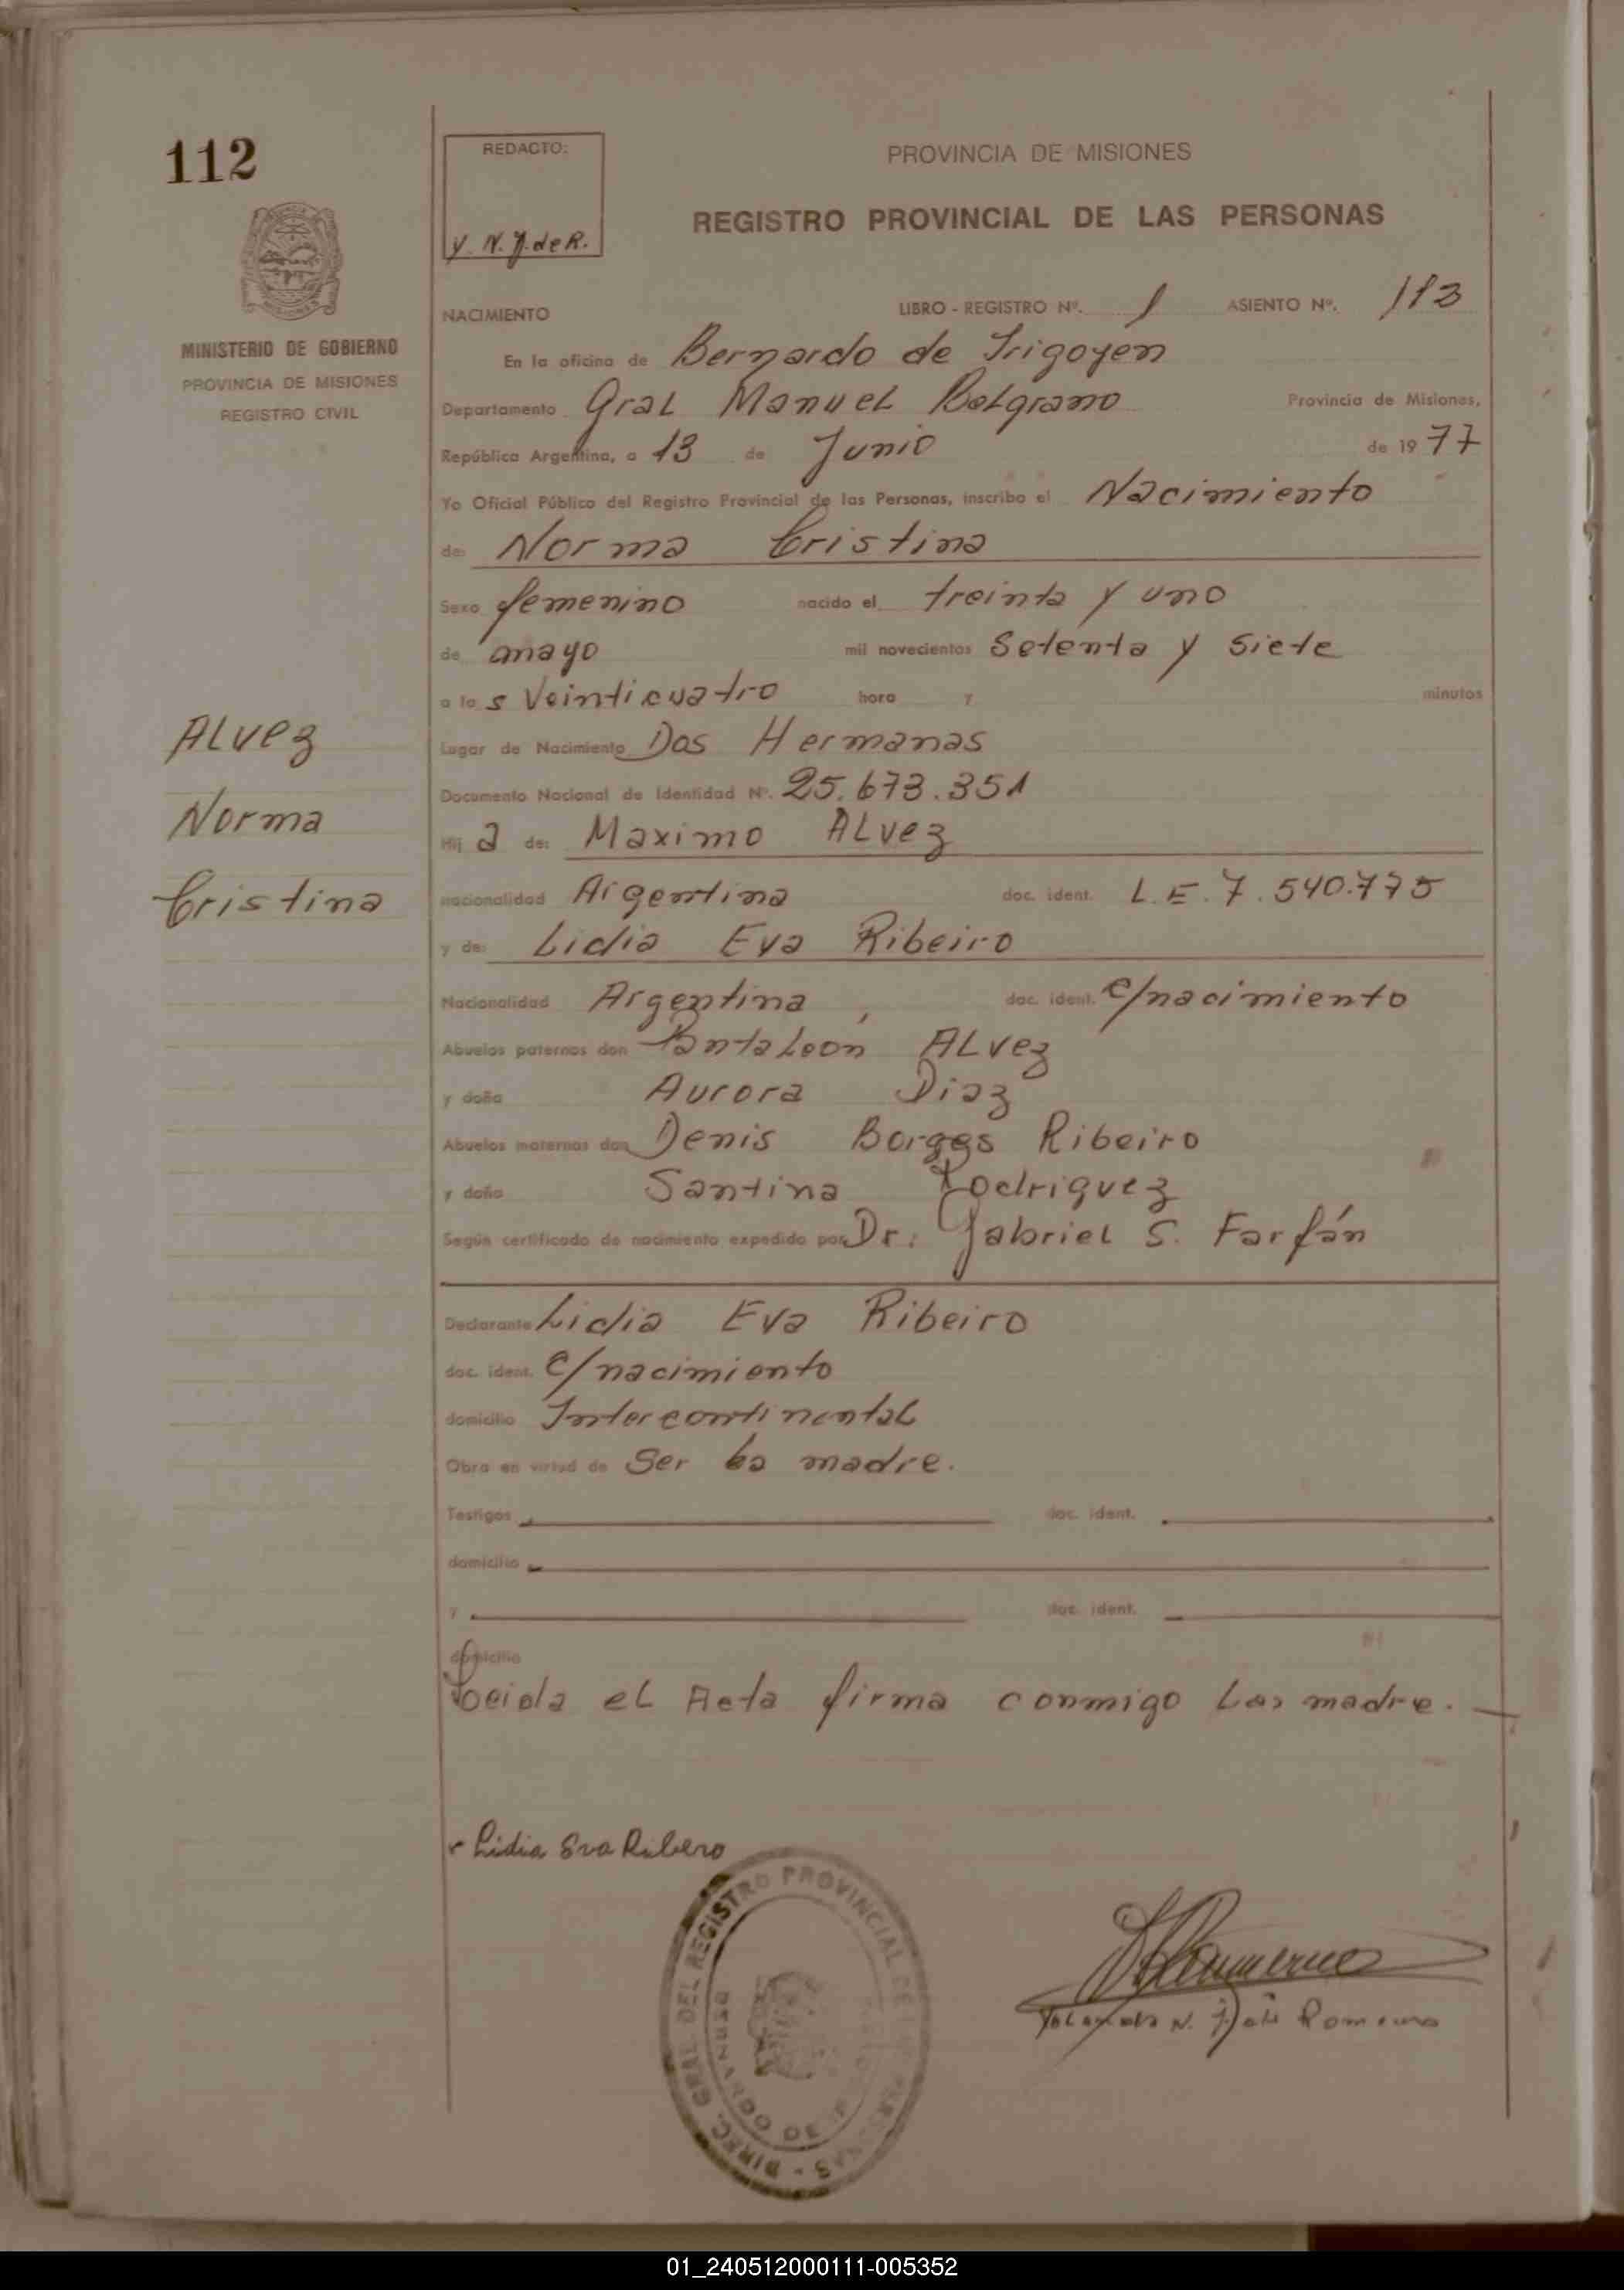 112
REDACTO:
Y. N. J. de R.
PROVINCIA DE MISIONES
REGISTRO PROVINCIAL DE LAS PERSONAS
MINISTERIO DE GOBIERNO
PROVINCIA DE MISIONES
REGISTRO CIVIL
NACIMIENTO LIBRO - REGISTRO Nº. 1 ASIENTO Nº. 113
En la oficina de Bernardo de Irigoyen
Departamento Gral Manuel Belgrano Provincia de Misiones,
República Argentina, a 13 de Junio de 1977
Yo Oficial Público del Registro Provincial de las Personas, inscribo el Nacimiento
de: Norma Cristina
Sexo femenino nacido el treinta y uno
de mayo mil novecientos Setenta y Siete
a las Veinticuatro hora y minutos
Lugar de Nacimiento Dos Hermanas
Documento Nacional de Identidad Nº. 25.673.351
Hija de: Maximo ALvez
nacionalidad Argentina doc. ident. L.E. 7.540.775
y de: Lidia Eva Ribeiro
Nacionalidad Argentina, doc. ident. C/nacimiento
Abuelos paternos don Pantaleón ALvez
y doña Aurora Diaz
Abuelos maternos don Denis Borges Ribeiro
y doña Santina Rodriguez
Según certificado de nacimiento expedido por Dr: Gabriel S. Farfán
ALvez
Norma
Cristina
Declarante Lidia Eva Ribeiro
doc. ident. C/nacimiento
domicilio Intercontinental
Obra en virtud de Ser la madre.
Testigos doc. ident.
domicilio
y doc. ident.
domicilio
Leida el Acta firma conmigo la madre.
Lidia Eva Ribero
DIREC. GRAL. DEL REGISTRO PROVINCIAL DE LAS PERSONAS
BERNARDO DE
Yolanda N. Romero
01_240512000111-005352